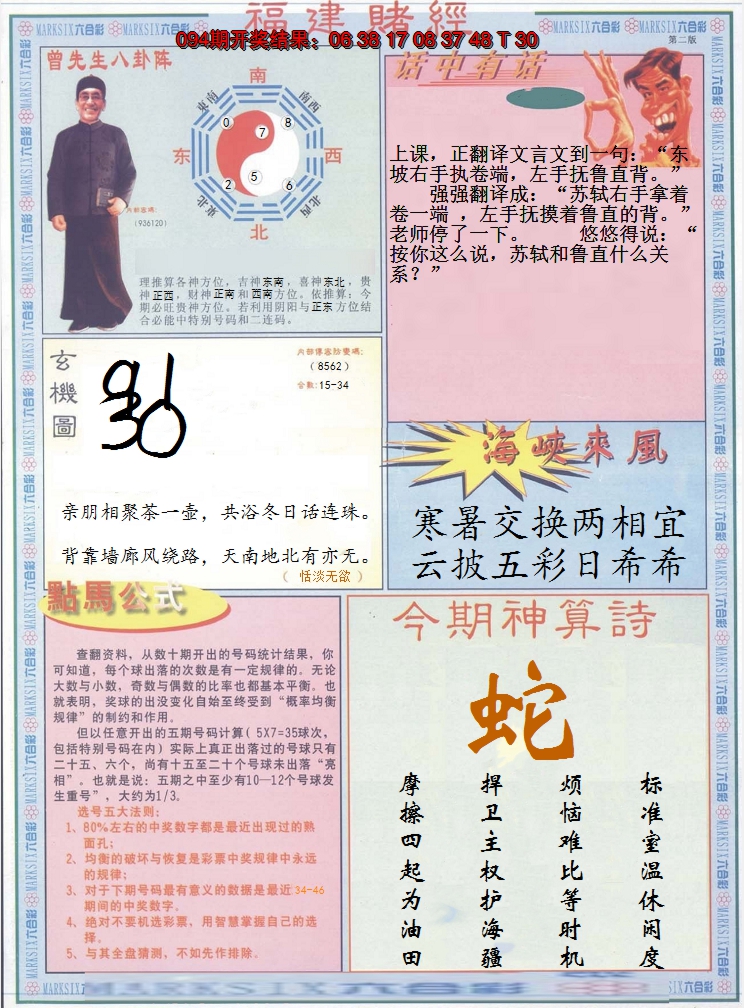 福建賭經
MARKSIX六合彩 MARKSIX六合彩 MARKSIX六合彩 MARKSIX六合彩
094期开奖结果：06 38 17 08 37 48 T 30
第二版
曾先生八卦阵
南
东南
南西
0
8
7
东
西
5
2
6
東北
北西
北
内部密碼:
（936120）
理推算各神方位，吉神东南，喜神东北，贵
神正西，财神正南和西南方位。依推算：今
期必旺贵神方位。若利用阴阳与正东方位结
合必能中特别号码和二连码。
话中有话
上课，正翻译文言文到一句：“东
坡右手执卷端，左手抚鲁直背。”
强强翻译成：“苏轼右手拿着
卷一端 ，左手抚摸着鲁直的背。”
老师停了一下。 悠悠得说：“
按你这么说，苏轼和鲁直什么关
系？”
玄機圖
内部傳密防變碼:
（8562）
合数:15-34
亲朋相聚茶一壶，共浴冬日话连珠。
背靠墙廊风绕路，天南地北有亦无。
（ 恬淡无欲 ）
海峽來風
寒暑交换两相宜
云披五彩日希希
點馬公式
查翻资料，从数十期开出的号码统计结果，你
可知道，每个球出落的次数是有一定规律的。无论
大数与小数，奇数与偶数的比率也都基本平衡。也
就表明，奖球的出没变化自始至终受到“概率均衡
规律”的制约和作用。
但以任意开出的五期号码计算( 5X7=35球次，
包括特别号码在内) 实际上真正出落过的号球只有
二十五、六个，尚有十五至二十个号球未出落“亮
相”。也就是说：五期之中至少有10—12个号球发
生重号”，大约为1/3。
选号五大法则:
1、80%左右的中奖数字都是最近出现过的熟
面孔；
2、均衡的破坏与恢复是彩票中奖规律中永远
的规律；
3、对于下期号码最有意义的数据是最近 34-46
期间的中奖数字。
4、绝对不要机选彩票，用智慧掌握自己的选
择。
5、与其全盘猜测，不如先作排除。
今期神算詩
蛇
标准室温休闲度
烦恼难比等时机
捍卫主权护海疆
摩擦四起为油田